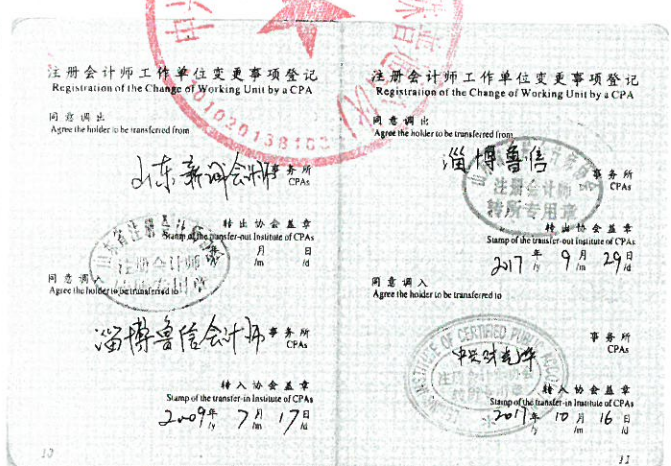 注册会计师工作单位变更事项登记
Registration of the Change of Working Unit by a CPA
同意调出
Agree the holder to be transferred from
山东新诚会计师事务所
CPAs
转出协会盖章
Stamp of the transfer-out Institute of CPAs
月 日
/m /d
同意调入
Agree the holder to be transferred to
淄博鲁信会计师事务所
CPAs
转入协会盖章
Stamp of the transfer-in Institute of CPAs
2009年 7月 17日
/y /m /d
10
注册会计师工作单位变更事项登记
Registration of the Change of Working Unit by a CPA
同意调出
Agree the holder to be transferred from
淄博鲁信 事务所
CPAs
注册会计师
转所专用章
转出协会盖章
Stamp of the transfer-out Institute of CPAs
2017年 9月 29日
/y /m /d
同意调入
Agree the holder to be transferred to
中兴财光华 事务所
CPAs
转入协会盖章
Stamp of the transfer-in Institute of CPAs
2017年 10月 16日
/y /m /d
11